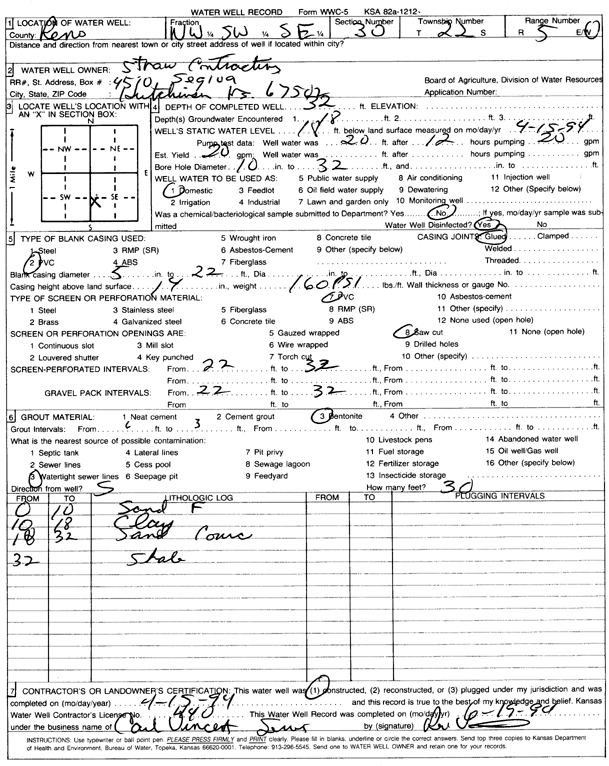 WATER WELL RECORD Form WWC-5 KSA 82a-1212-
1 LOCATION OF WATER WELL: Fraction Section Number Township Number Range Number
County: Reno NW ¼ SW ¼ SE ¼ 30 T 22 S R 5 E/W
Distance and direction from nearest town or city street address of well if located within city?
2 WATER WELL OWNER: Straw Contracting
RR#, St. Address, Box # : 4510 Segiva Board of Agriculture, Division of Water Resources
City, State, ZIP Code : Hutchinson Ks. 67502 Application Number:
3 LOCATE WELL'S LOCATION WITH AN "X" IN SECTION BOX:
N
NW NE
W E
SW SE
X
S
1 Mile
4 DEPTH OF COMPLETED WELL 32 ft. ELEVATION:
Depth(s) Groundwater Encountered 1. 18 ft. 2. ft. 3. ft.
WELL'S STATIC WATER LEVEL 18 ft. below land surface measured on mo/day/yr 4-15-94
Pump test data: Well water was 20 ft. after 12 hours pumping 20 gpm
Est. Yield 20 gpm: Well water was ft. after hours pumping gpm
Bore Hole Diameter 10 in. to 32 ft., and in. to ft.
WELL WATER TO BE USED AS: 5 Public water supply 8 Air conditioning 11 Injection well
1 Domestic 3 Feedlot 6 Oil field water supply 9 Dewatering 12 Other (Specify below)
2 Irrigation 4 Industrial 7 Lawn and garden only 10 Monitoring well
Was a chemical/bacteriological sample submitted to Department? Yes No ; If yes, mo/day/yr sample was submitted Water Well Disinfected? Yes No
5 TYPE OF BLANK CASING USED: 5 Wrought iron 8 Concrete tile CASING JOINTS: Glued Clamped
1 Steel 3 RMP (SR) 6 Asbestos-Cement 9 Other (specify below) Welded
2 PVC 4 ABS 7 Fiberglass Threaded
Blank casing diameter 5 in. to 22 ft., Dia in. to ft., Dia in. to ft.
Casing height above land surface 14 in., weight 160 PSI lbs./ft. Wall thickness or gauge No.
TYPE OF SCREEN OR PERFORATION MATERIAL: 7 PVC 10 Asbestos-cement
1 Steel 3 Stainless steel 5 Fiberglass 8 RMP (SR) 11 Other (specify)
2 Brass 4 Galvanized steel 6 Concrete tile 9 ABS 12 None used (open hole)
SCREEN OR PERFORATION OPENINGS ARE: 5 Gauzed wrapped 8 Saw cut 11 None (open hole)
1 Continuous slot 3 Mill slot 6 Wire wrapped 9 Drilled holes
2 Louvered shutter 4 Key punched 7 Torch cut 10 Other (specify)
SCREEN-PERFORATED INTERVALS: From 22 ft. to 32 ft., From ft. to ft.
From ft. to ft., From ft. to ft.
GRAVEL PACK INTERVALS: From 22 ft. to 32 ft., From ft. to ft.
From ft. to ft., From ft. to ft.
6 GROUT MATERIAL: 1 Neat cement 2 Cement grout 3 Bentonite 4 Other
Grout Intervals: From 6 ft. to 3 ft., From ft. to ft., From ft. to ft.
What is the nearest source of possible contamination: 10 Livestock pens 14 Abandoned water well
1 Septic tank 4 Lateral lines 7 Pit privy 11 Fuel storage 15 Oil well/Gas well
2 Sewer lines 5 Cess pool 8 Sewage lagoon 12 Fertilizer storage 16 Other (specify below)
3 Watertight sewer lines 6 Seepage pit 9 Feedyard 13 Insecticide storage
Direction from well? S How many feet? 30
FROM TO LITHOLOGIC LOG FROM TO PLUGGING INTERVALS
0 10 Sand F
10 18 Clay
18 32 Sand Course
32 Shale
7 CONTRACTOR'S OR LANDOWNER'S CERTIFICATION: This water well was (1) constructed, (2) reconstructed, or (3) plugged under my jurisdiction and was
completed on (mo/day/year) 4-15-94 and this record is true to the best of my knowledge and belief. Kansas
Water Well Contractor's License No. This Water Well Record was completed on (mo/day/yr) 6-19-94
under the business name of Carl Vincent by (signature)
INSTRUCTIONS: Use typewriter or ball point pen. PLEASE PRESS FIRMLY and PRINT clearly. Please fill in blanks, underline or circle the correct answers. Send top three copies to Kansas Department
of Health and Environment, Bureau of Water, Topeka, Kansas 66620-0001. Telephone: 913-296-5545. Send one to WATER WELL OWNER and retain one for your records.